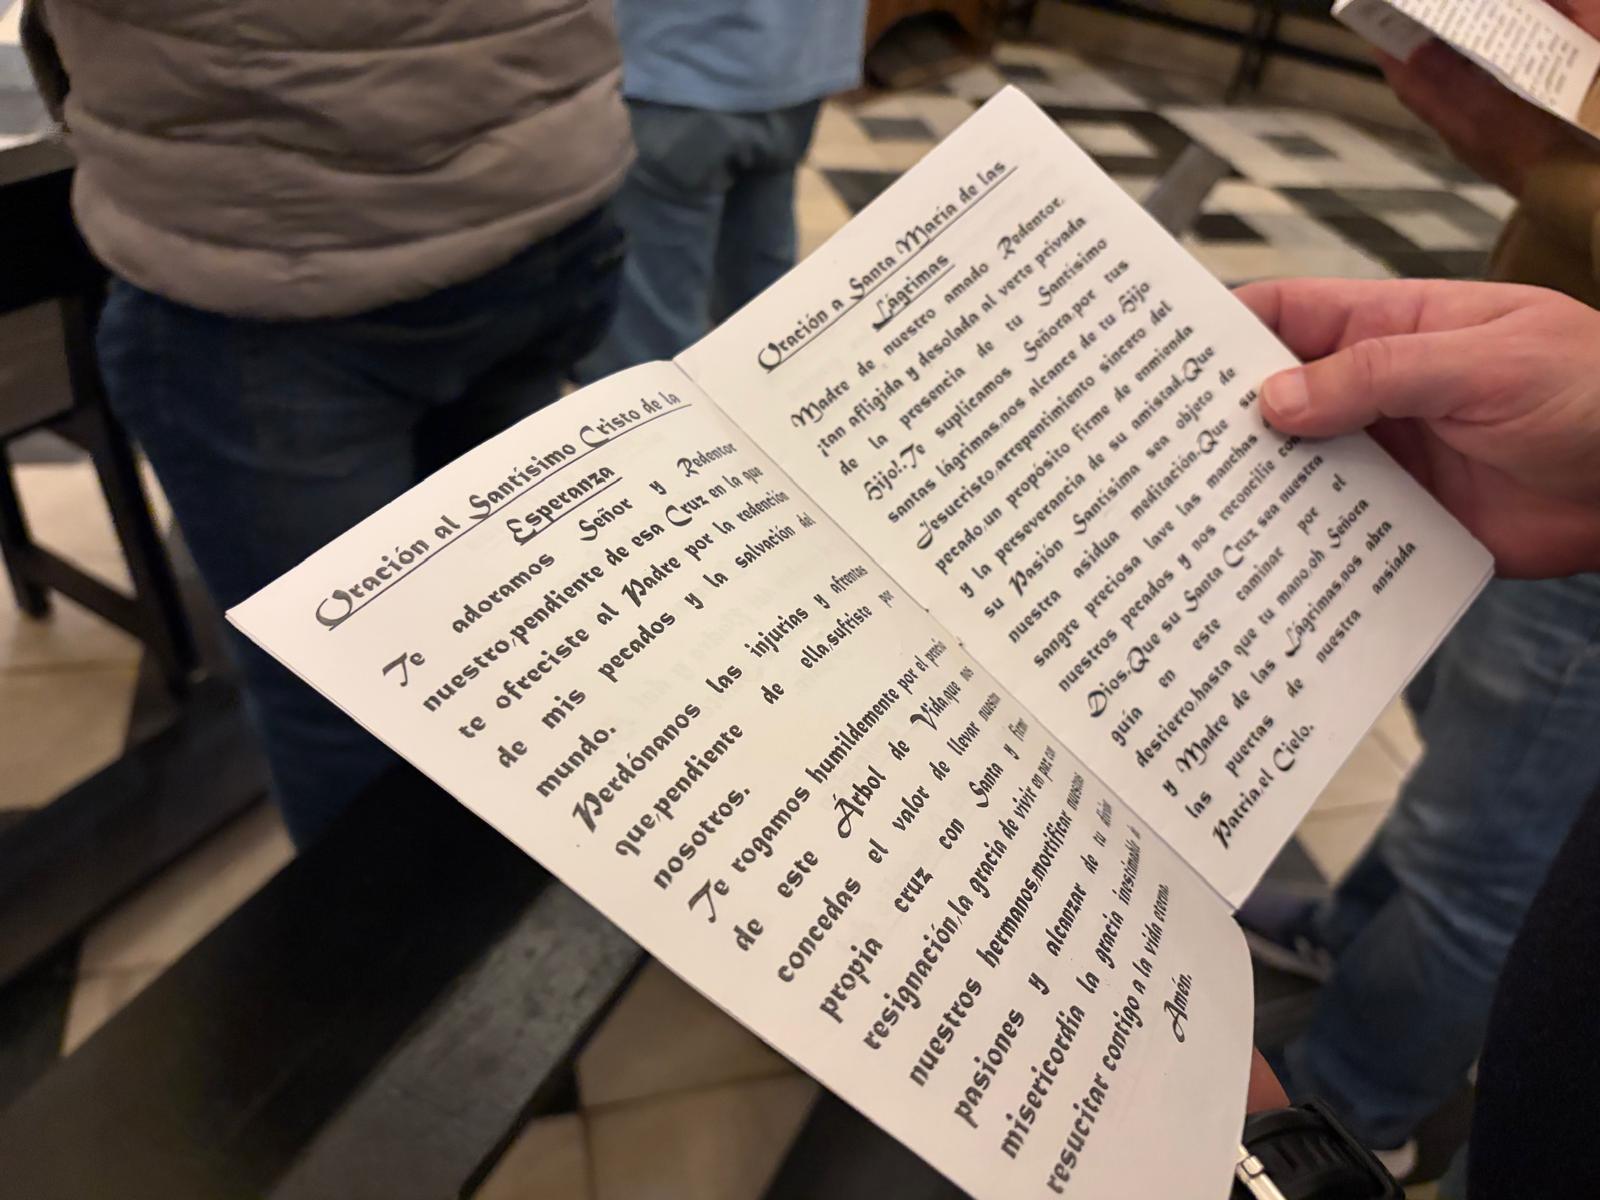 Oración al Santísimo Cristo de la
Esperanza
Te adoramos Señor y Redentor
nuestro,pendiente de esa Cruz en la que
te ofreciste al Padre por la redención
de mis pecados y la salvación del
mundo.
Perdónanos las injurias y afrentas
que,pendiente de ella,sufriste por
nosotros.
Te rogamos humildemente por el precio
de este Árbol de Vida,que nos
concedas el valor de llevar nuestra
propia cruz con Santa y firme
resignación,la gracia de vivir en paz con
nuestros hermanos,mortificar nuestras
pasiones y alcanzar de tu divina
misericordia la gracia inestimable de
resucitar contigo a la vida eterna.
Amén.
Oración a Santa María de las
Lágrimas
Madre de nuestro amado Redentor,
¡tan afligida y desolada al verte privada
de la presencia de tu Santísimo
Hijo!.Te suplicamos Señora,por tus
santas lágrimas,nos alcance de tu Hijo
Jesucristo,arrepentimiento sincero del
pecado,un propósito firme de enmienda
y la perseverancia de su amistad.Que
su Pasión Santísima sea objeto de
nuestra asidua meditación.Que su
sangre preciosa lave las manchas
nuestros pecados y nos reconcilie con
Dios.Que su Santa Cruz sea nuestra
guía en este caminar por el
destierro,hasta que tu mano,oh Señora
y Madre de las Lágrimas,nos abra
las puertas de nuestra ansiada
Patria,el Cielo.